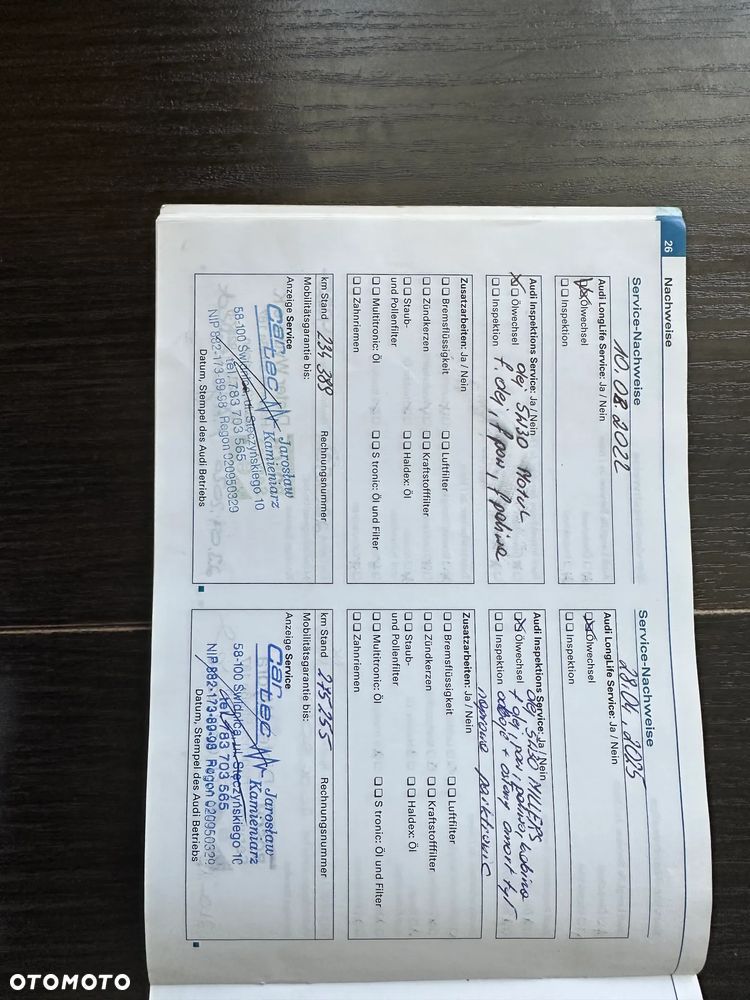 26
Nachweise
Service-Nachweise
10.08.2022
Audi LongLife Service: Ja / Nein
Ölwechsel
Inspektion
Audi Inspektions Service: Ja / Nein
Ölwechsel
Inspektion
olej 5W30 MOTUL
f. olej, f. pow, f. paliwa
Zusatzarbeiten: Ja / Nein
Bremsflüssigkeit
Luftfilter
Zündkerzen
Kraftstofffilter
Staub-
und Pollenfilter
Haldex: Öl
Multitronic: Öl
S tronic: Öl und Filter
Zahnriemen
km Stand 234 389
Rechnungsnummer
Mobilitätsgarantie bis:
Anzeige Service
Car tec
Jarosław
Kamieniarz
58-100 Świdnica, ul. Sleczyńskiego 10
tel. 783 703 565
NIP 882-173-89-98 Regon 020950329
Datum, Stempel des Audi Betriebs
Service-Nachweise
28.04.2025
Audi LongLife Service: Ja / Nein
Ölwechsel
Inspektion
Audi Inspektions Service: Ja / Nein
Ölwechsel
Inspektion
olej 5W30 MILLERS
f olej, pow, paliwa, kabina
+ amort tył
Zusatzarbeiten: Ja / Nein
naprawa parktronic
Bremsflüssigkeit
Luftfilter
Zündkerzen
Kraftstofffilter
Staub-
und Pollenfilter
Haldex: Öl
Multitronic: Öl
S tronic: Öl und Filter
Zahnriemen
km Stand 275.255
Rechnungsnummer
Mobilitätsgarantie bis:
Anzeige Service
Car tec
Jarosław
Kamieniarz
58-100 Świdnica, ul. Sleczyńskiego 10
tel. 783 703 565
NIP 882-173-89-98 Regon 020950329
Datum, Stempel des Audi Betriebs
OTOMOTO